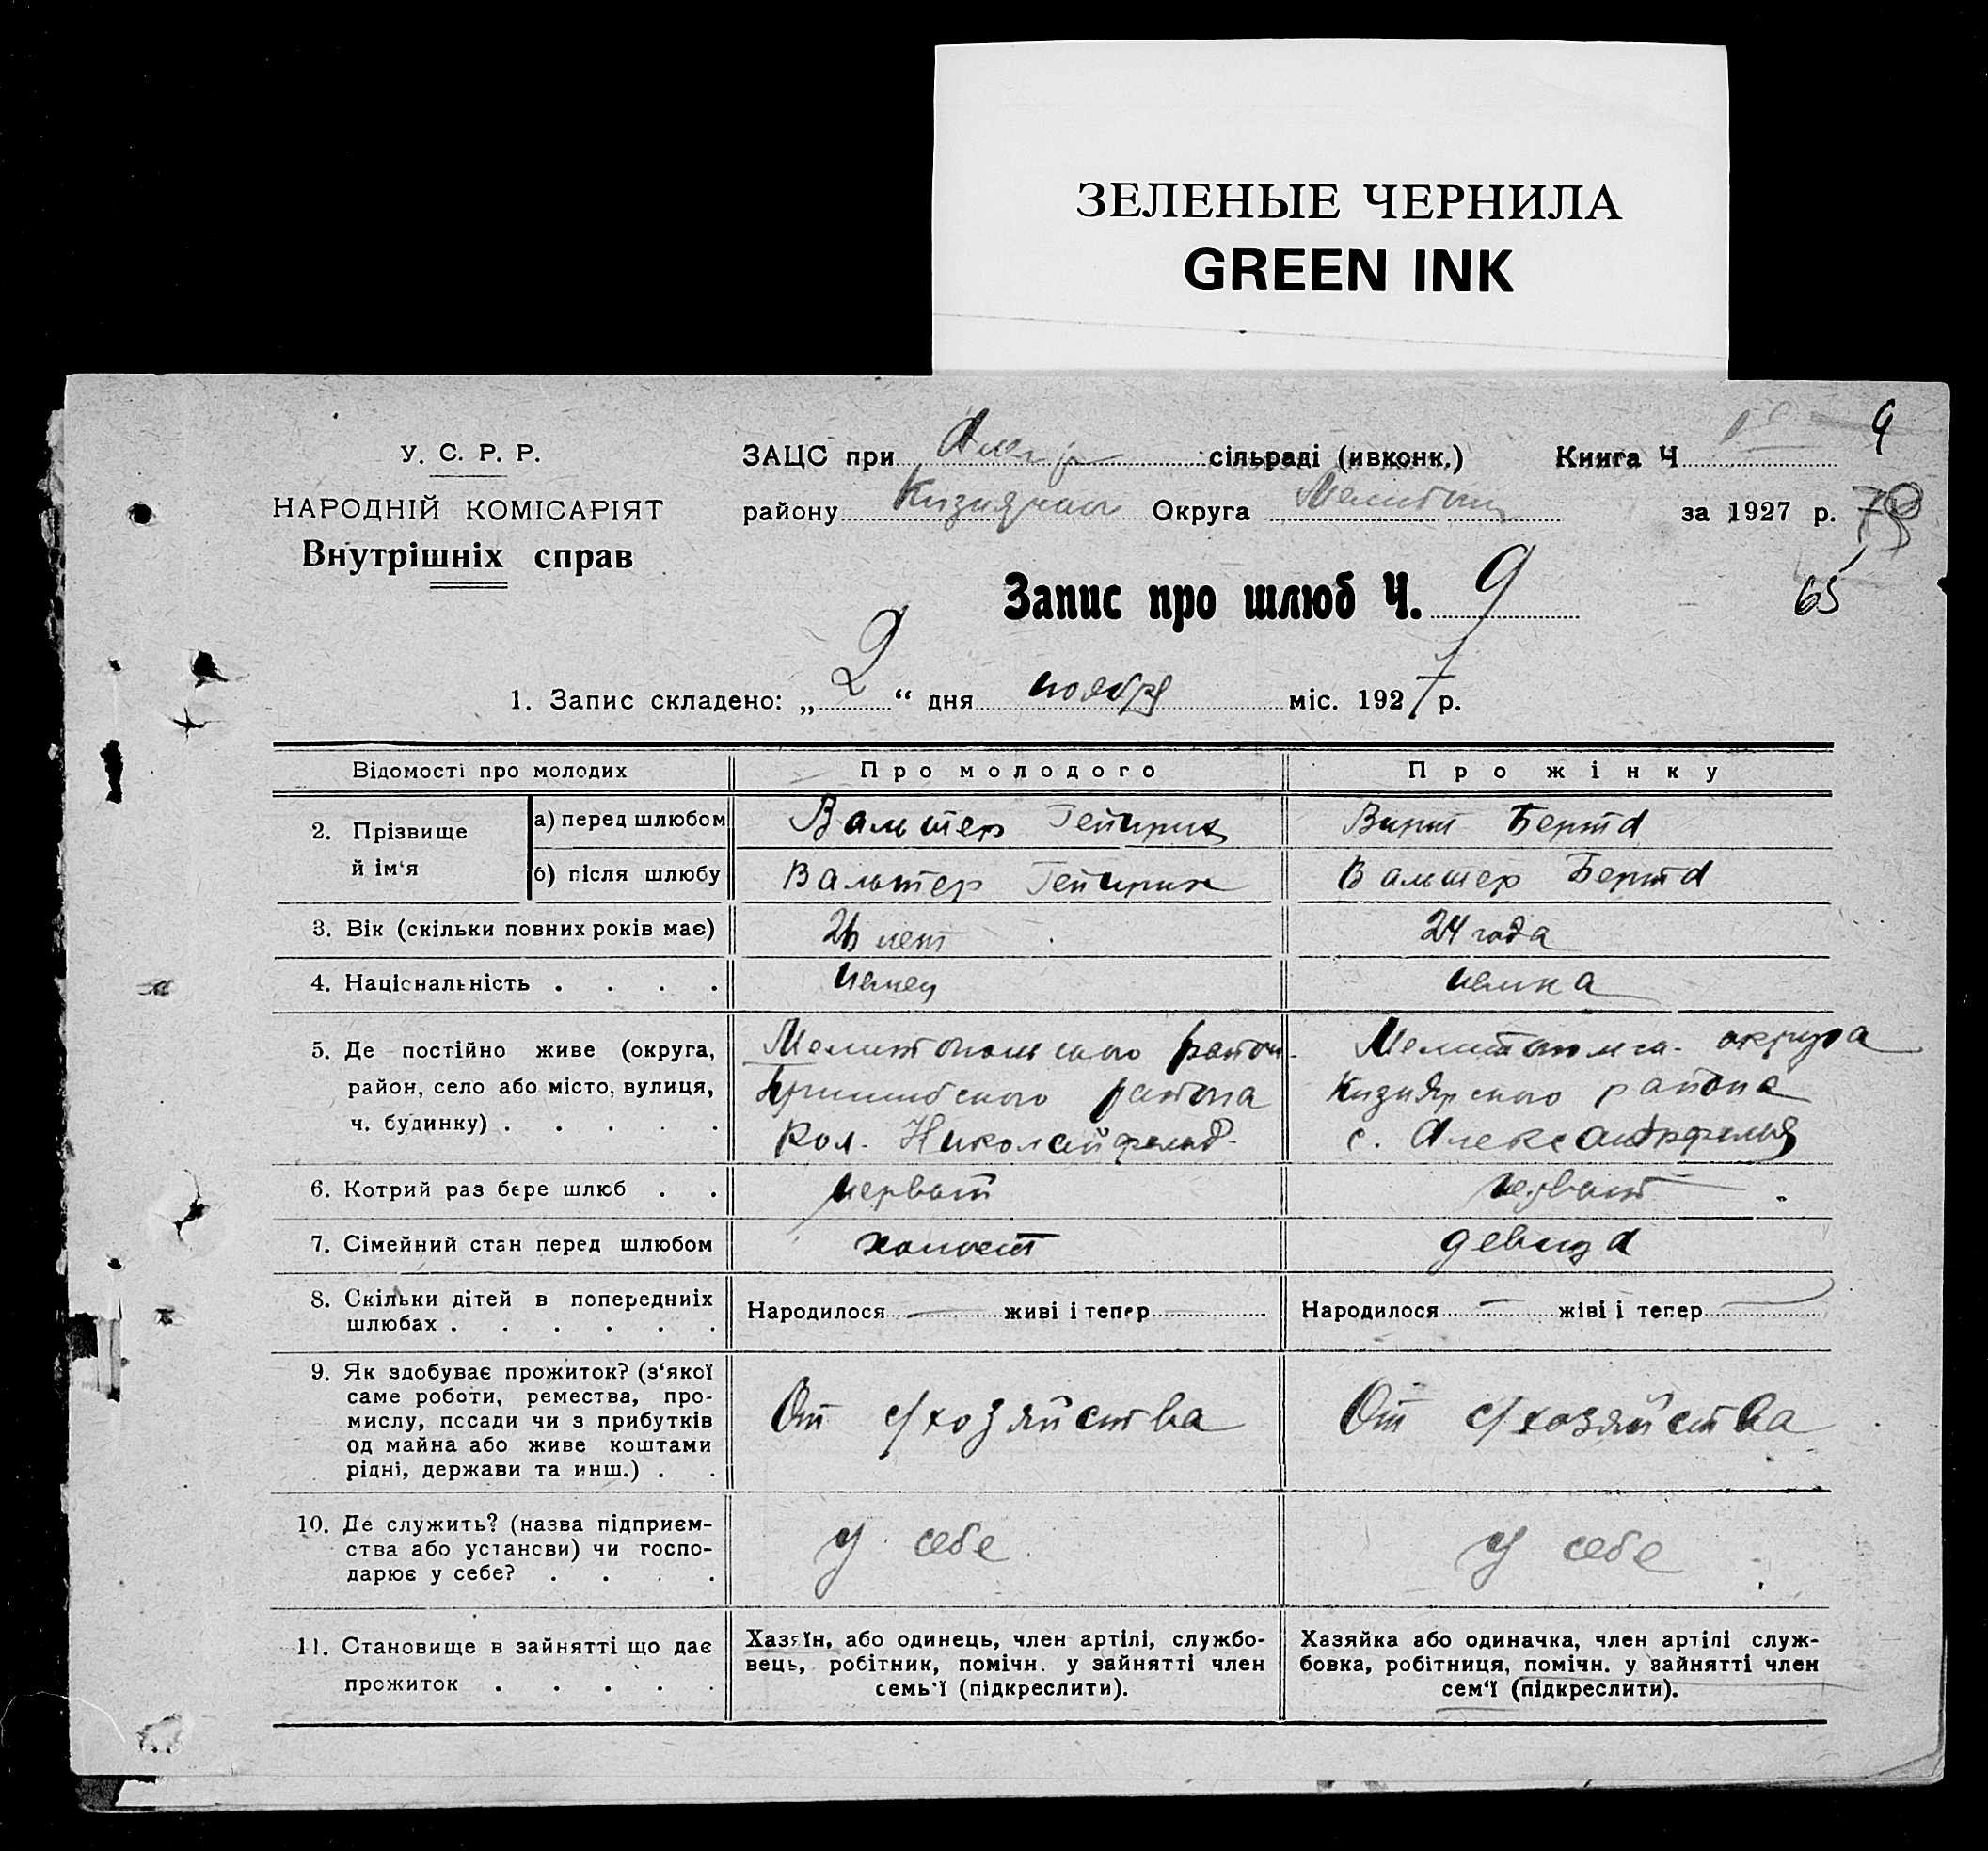 ЗЕЛЕНЫЕ ЧЕРНИЛА
GREEN INK
У. С. Р. Р.
НАРОДНІЙ КОМІСАРІЯТ
Внутрішніх справ
ЗАЦС при сільраді (ивконк.) Книга Ч 9
району Округа за 1927 р. 78
Запис про шлюб Ч. 9
65
1. Запис складено: „ 2 “ дня ноября міс. 1927 р.
Відомості про молодих Про молодого Про жінку
2. Прізвище й ім‘я
а) перед шлюбом Вальтер Гейнрих Вирт Берта
б) після шлюбу Вальтер Гейнрих Вальтер Берта
3. Вік (скільки повних років має) 26 лет 24 года
4. Національність . . . . немец немка
5. Де постійно живе (округа, Мелитопольского округа
район, село або місто, вулиця, района Кизиярского района
ч. будинку) . . . . . Кол. Николайфельд с. Александрфельд
6. Котрий раз бере шлюб . . первый первый
7. Сімейний стан перед шлюбом холост девица
8. Скільки дітей в попередниіх Народилося — живі і тепер — Народилося — жіві і тепер —
шлюбах . . . . . .
9. Як здобуває прожиток? (з‘якої
саме роботи, ремества, про-
мислу, посади чи з прибутків От с/хозяйства От с/хозяйства
од майна або живе коштами
рідні, держави та инш.) . .
10. Де служить? (назва підприєм-
ства або установи) чи госпо- у себе у себе
дарює у себе? . . . .
11. Становище в зайнятті що дає
прожиток . . . . .
Хазяїн, або одинець, член артілі, службо-
вець, робітник, помічн. у зайнятті член
семь‘ї (підкреслити).
Хазяйка або одиначка, член артілі служ-
бовка, робітниця, помічн. у зайнятті член
сем‘ї (підкреслити).